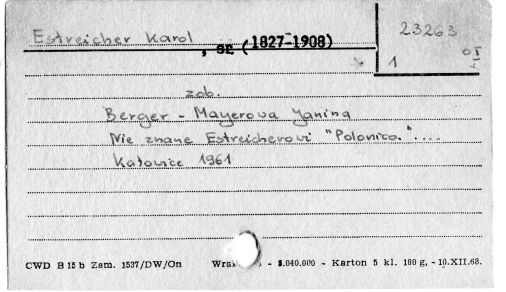 Estreicher Karol
, SE (1827-1908)
23263
1
zob.
Berger - Mayerowa Janina
Nie znane Estreicherowi "Polonica."....
Katowice 1961
CWD B 15 b Zam. 1537/DW/On - 5.040.000 - Karton 5 kl. 180 g. - 10.XII.68.